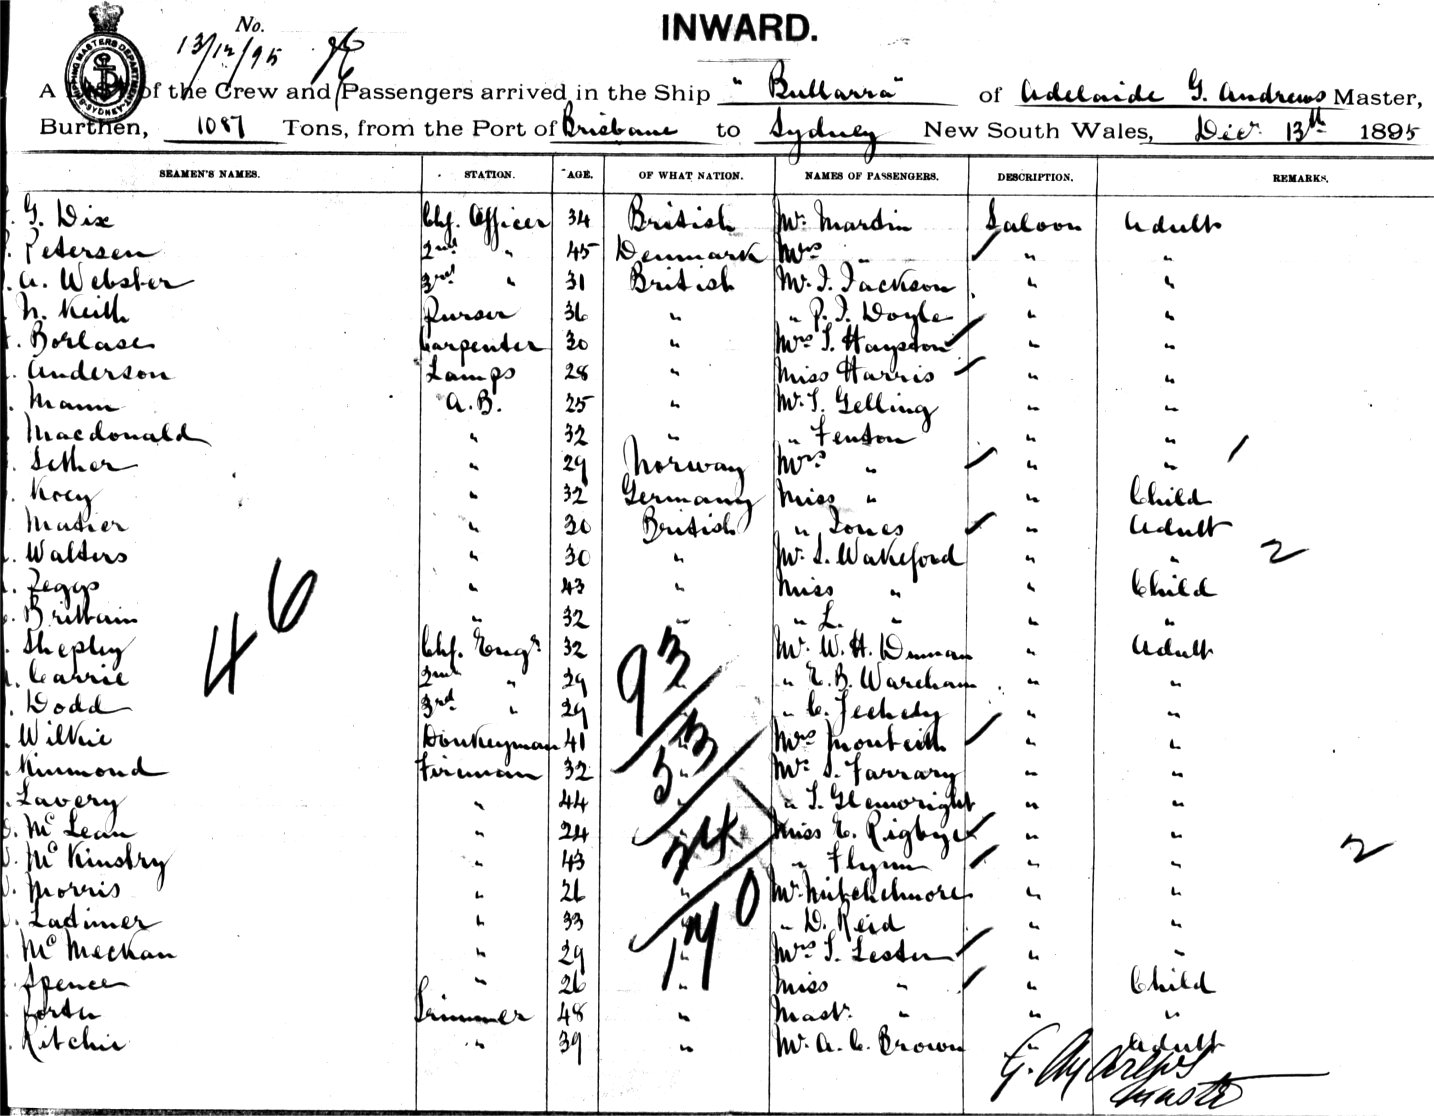 INWARD.
No.
13/12/95
A of the Crew and Passengers arrived in the Ship "Bullarra" of Adelaide G. Andrews Master,
Burthen, 1087 Tons, from the Port of Brisbane to Sydney New South Wales, Decr 13th 1895
SEAMEN'S NAMES. STATION. AGE. OF WHAT NATION. NAMES OF PASSENGERS. DESCRIPTION. REMARKS.
G. Dix Chf. Officer 34 British Mr. Martin Saloon Adult
Petersen 2nd " 45 Denmark Mrs " " "
A. Webster 3rd " 31 British Mr. J. Jackson " "
N. Keith Purser 36 " " P. J. Doyle " "
Borlase Carpenter 30 " Mrs " "
Anderson Lamps 28 " Miss Harris " "
Mann A.B. 25 " Mr. Gelling " "
Macdonald " 32 " " Fenton " "
" 29 Norway Mrs " " "
" 32 Germany Miss " " Child
" 30 British " Jones " Adult
Walters " 30 " Mr. Wakeford " " 2
" 43 " Miss " " Child
Brittain " 32 " " L. " " "
Shepley Chf. Engr 32 Mr. W. H. " Adult
Carrie 2nd " 39 " E. B. Wareham " "
Dodd 3rd " 29 " C. " "
Wilkie Donkeyman 41 Mrs Monteith " "
Kinmond Fireman 32 " Mr. Farrary " "
Lavery " 44 " " " "
Mc Lean " 24 Miss E. Rigbye " "
Mc Kinstry " 43 " Flynn " " 2
Morris " 26 " Mr. Mitchelmore " "
Latimer " 33 " D. Reid " "
Mc Meckan " 29 " Mrs Lester " "
Spence " 26 " Miss " " Child
Trimmer 48 " Mastr " " "
Ritchie " 39 " Mr. A. C. Brown " Adult
46
93
53
24
170
G. Andrews
Master